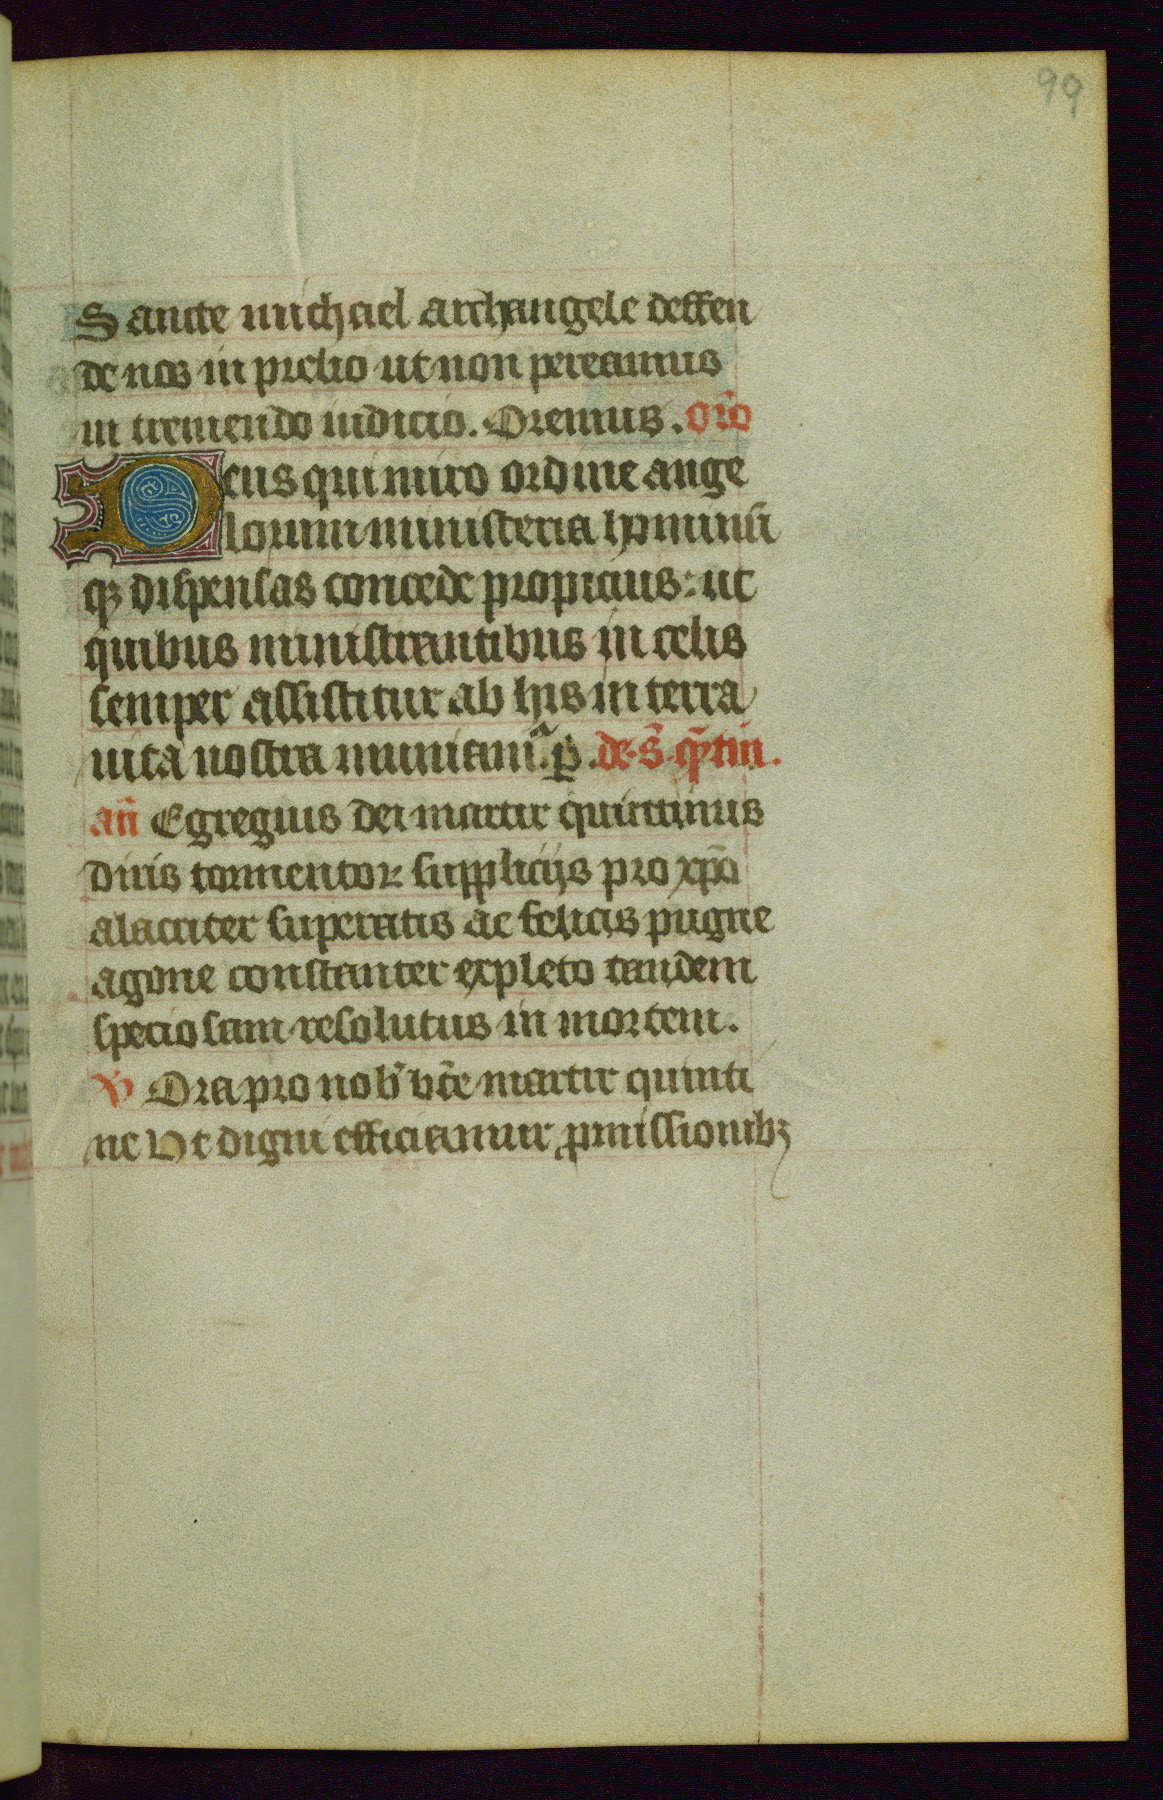 99
Sancte michael archangele deffen
de nos in prelio ut non pereamus
in tremendo iudicio. Oremus. oro̅
Deus qui miro ordine ange
lorum ministeria hominu̅
qꝫ dispensas concede propicius: ut
quibus ministrantibus in celis
semper assistitur ab hijs in terra
uita nostra muniam̅. p̲. de s̅. qȳtin̅.
an̅ Egregius dei martir quintinus
diris tormentoꝝ supplicijs pro xp̅o
alacriter superatis ac felicis pugne
agone constanter expleto tandem
speciosam resolutus in mortem.
℣ Ora pro nob̅ bt̅e martir quinti
ne Ut digni efficiamur ꝓmissionibꝫ